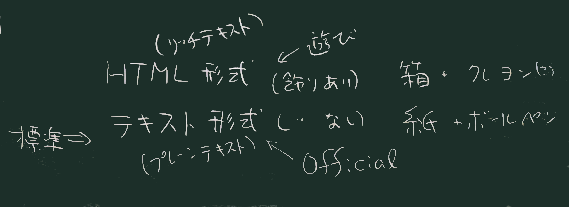 (リッチテキスト)
HTML 形式 (飾りあり) ← 遊び 箱・クレヨン
標準⇒ テキスト形式 (〃 ない) 紙・ボールペン
(プレーンテキスト) Official